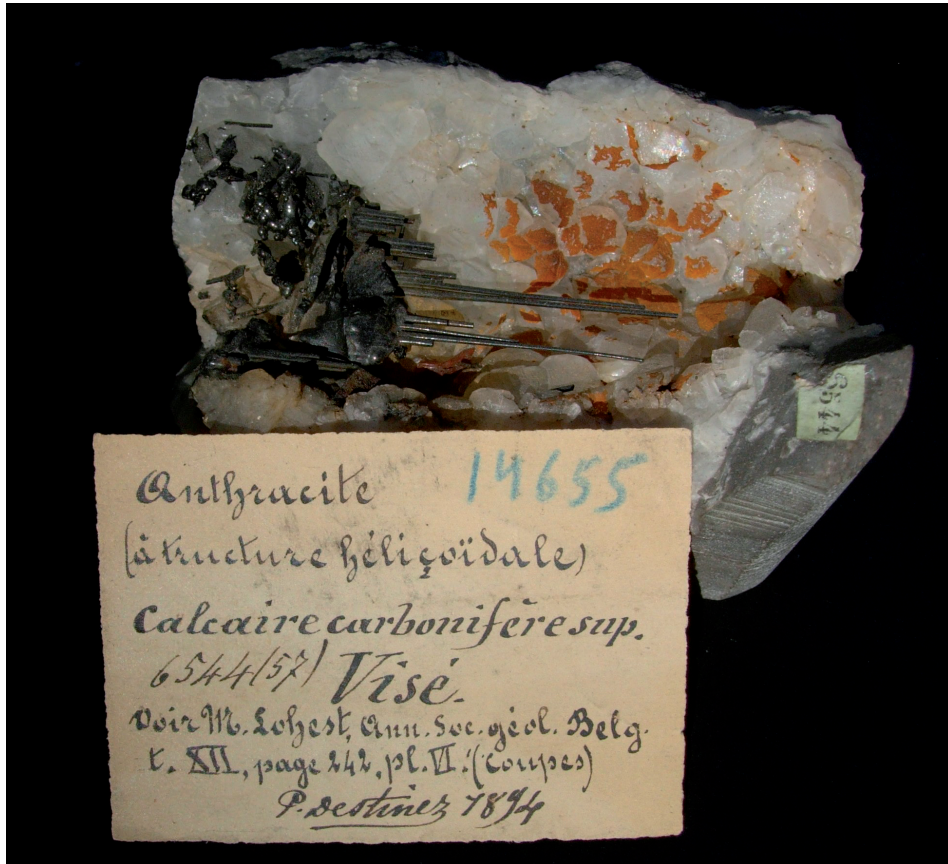 6544
Anthracite 14655
(structure héliçoïdale)
Calcaire carbonifère sup.
6544(57) Visé.
Voir M. Lohest, Ann. Soc. géol. Belg.
t. XII, page 242, pl. VI. (Coupes)
P. Destinez 1894